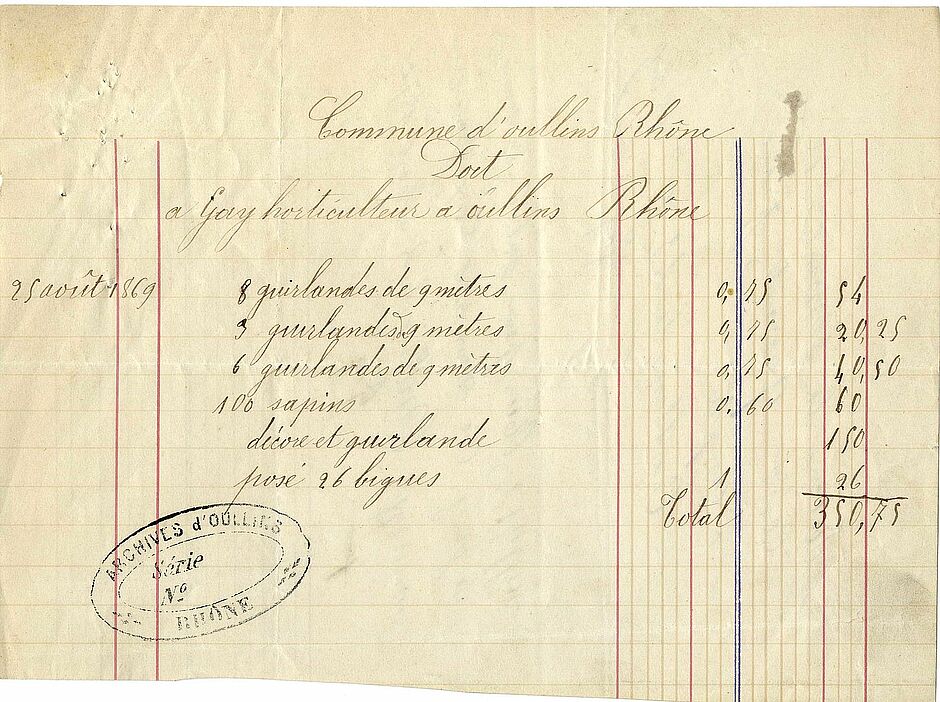 Commune d'oullins Rhône
Doit
a Gay horticulteur a oullins Rhône
25 août 1869 8 guirlandes de 9 mètres 0,75 54
3 guirlandes de 9 mètres 0,75 20,25
6 guirlandes de 9 mètres 0,75 40,50
100 sapins 0,60 60
décore et guirlande 150
posé 26 bigues 1 26
Total 350,75
ARCHIVES d'OULLINS
Série
N°
RHÔNE